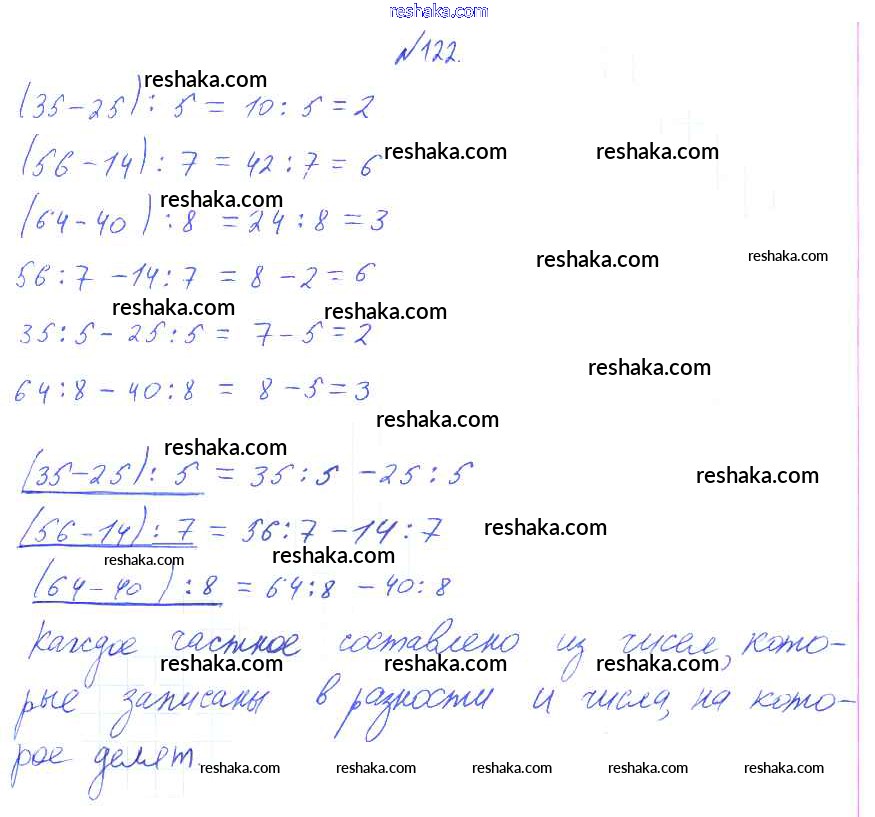 reshaka.com
№122.
reshaka.com
(35-25): 5 = 10: 5 = 2
(56-14): 7 = 42:7 = 6 reshaka.com reshaka.com
reshaka.com
(64-40):8 = 24:8 = 3
reshaka.com reshaka.com
56:7 -14:7 = 8 -2 = 6
reshaka.com reshaka.com
35:5- 25:5 = 7-5 = 2
reshaka.com
64:8 - 40:8 = 8 -5 = 3
reshaka.com
reshaka.com
(35-25): 5 = 35:5 -25:5 reshaka.com
(56-14): 7 = 56:7 -14:7 reshaka.com
reshaka.com reshaka.com
(64-40):8 = 64:8 -40:8
Каждое частное составлено из чисел, кото-
reshaka.com reshaka.com reshaka.com
рые записаны в разности и числа, на кото-
рое делят.
reshaka.com reshaka.com reshaka.com reshaka.com reshaka.com